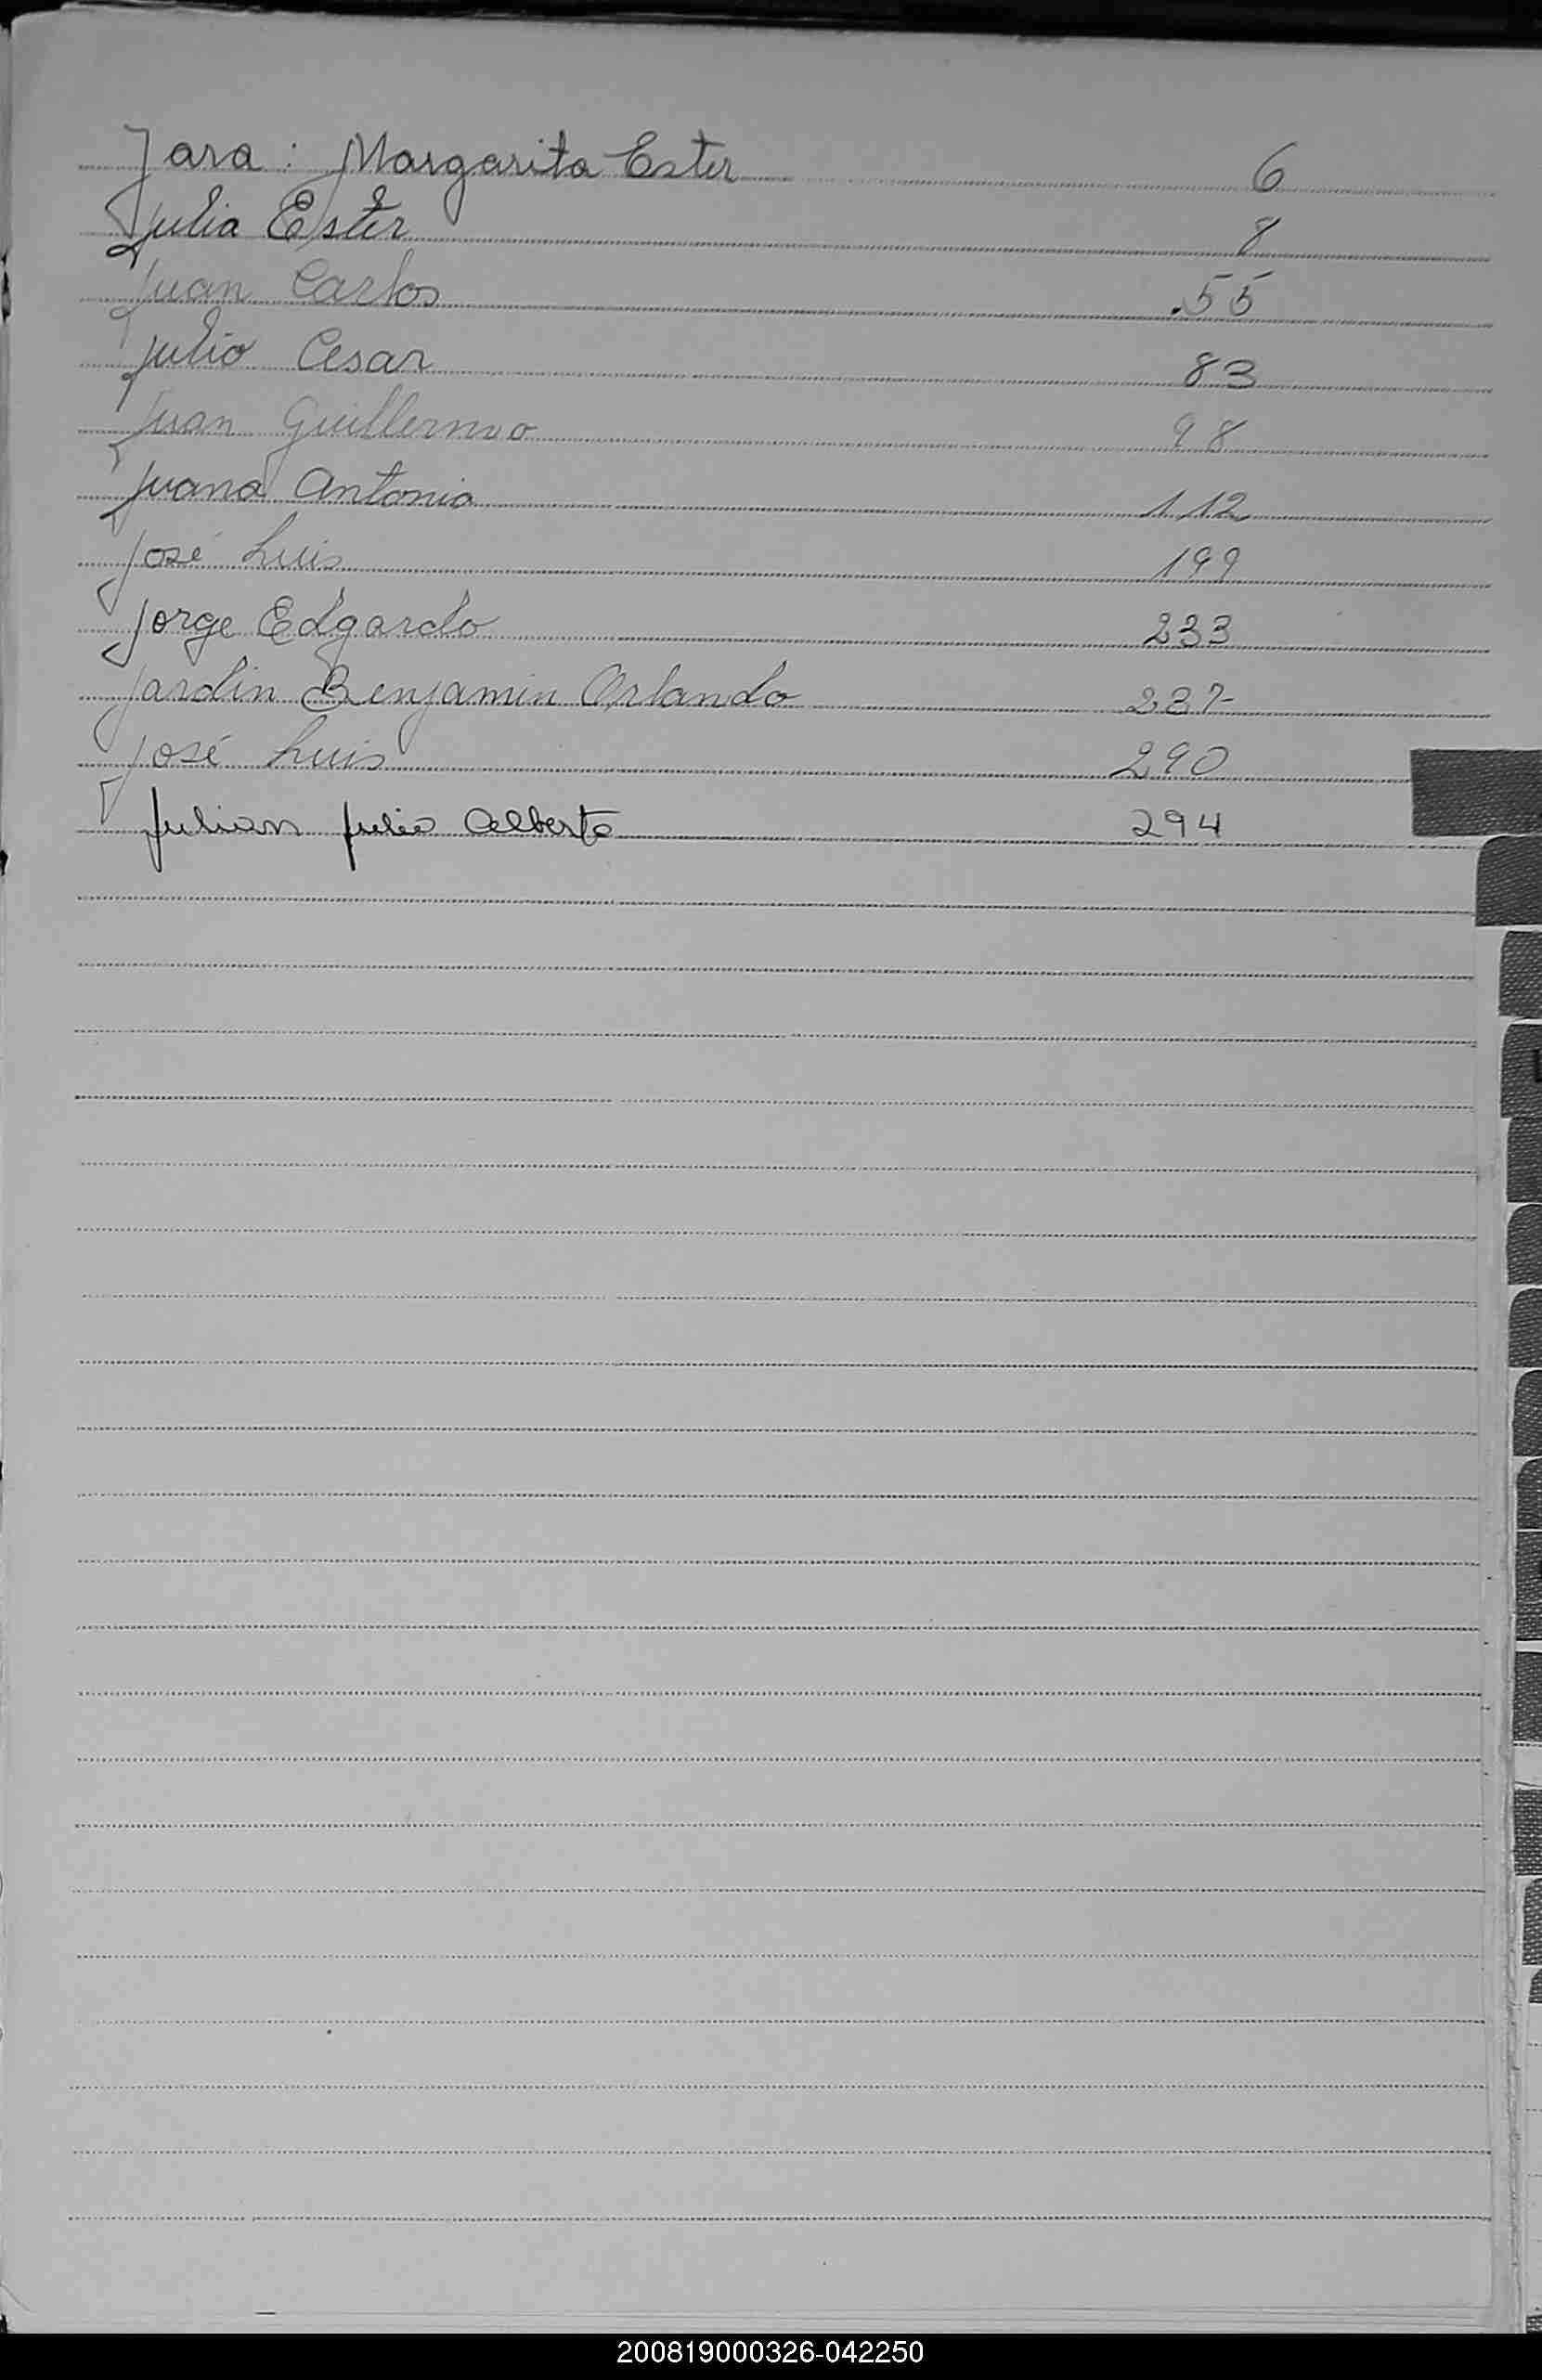 Jara: Margarita Ester 6
Julia Ester 8
Juan Carlos 55
Julio Cesar 83
Juan Guillermo 98
Juana Antonia 112
José Luis 199
Jorge Edgardo 233
Jardin Benjamin Orlando 237
José Luis 290
Julian Julio Alberto 294
200819000326-042250